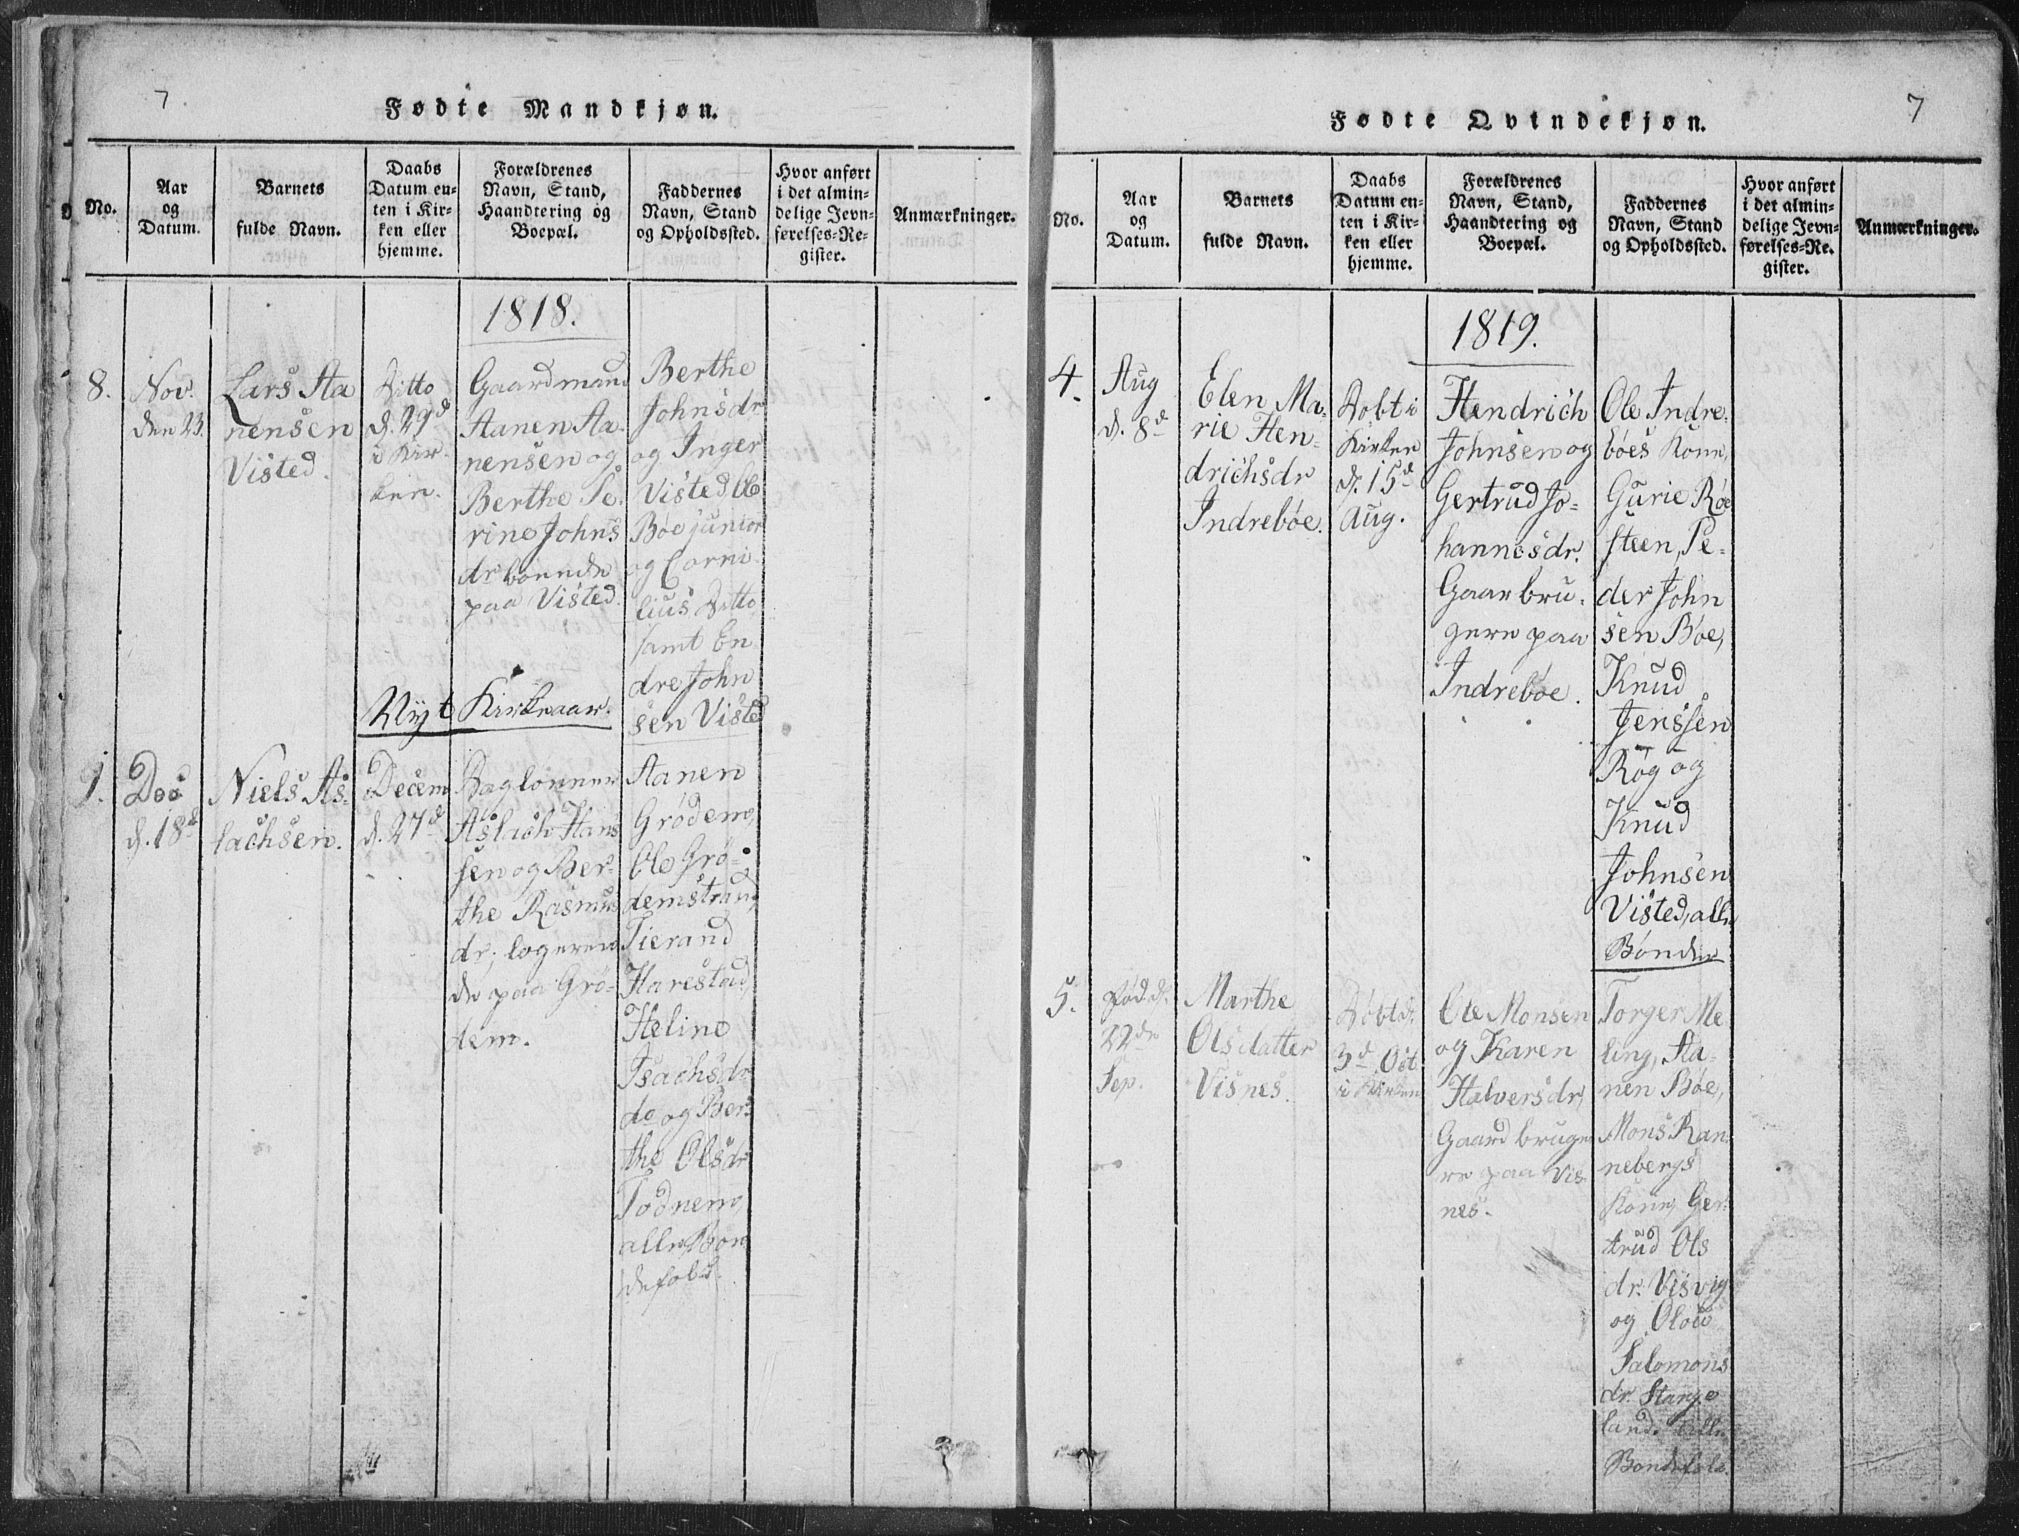 7.
Fødte Mandkjøn.
No.
Aar
og
Datum.
Barnets
fulde Navn.
Daabs
Datum en-
ten i Kir-
ken eller
hjemme.
Forældrenes
Navn, Stand,
Haandtering og
Boepæl.
Faddernes
Navn, Stand
og Opholdssted.
Hvor anført
i det almin-
delige Jevn-
førelses-Re-
gister.
Anmærkninger.
1818.
8.
Nov.
den 23.
Lars Aa
nensen
Visted.
Ditto
d. 29d
i Kir-
ken.
Gaardmand
Aanen Aa-
nensen og
Berthe Se-
rine Johns
dr boende
paa Visted.
Berthe
Johnsdr
og Inger
Visted Ole
Bøe junior
og Corni-
lius Ditto
samt En
dre John
sen Visted
Nyt Kirkeaar.
1.
Dec
d. 18d
Niels As-
lachsen.
Decem
d. 27d
Daglønner
Aslach Hans
sen og Ber-
the Rasmus
dr, logeren
de paa Grø-
dem.
Aanen
Grødem,
Ole Grø-
demstrand,
Tierand
Harestad,
Heline
Isachsdr
do og Ber-
the Olsdr
Todnem,
alle Bøn
defolk.
7
Fødte Qvindekjøn.
No.
Aar
og
Datum.
Barnets
fulde Navn.
Daabs
Datum en-
ten i Kir-
ken eller
hjemme.
Forældrenes
Navn, Stand,
Haandtering og
Boepæl.
Faddernes
Navn, Stand
og Opholdssted.
Hvor anført
i det almin-
delige Jevn-
førelses-Re-
gister.
Anmærkninger.
1819.
4.
Aug
d. 8d
Elen Ma-
rie Hen-
drichsdr
Indrebøe.
Døbt i
Kirken
d. 15d
Aug.
Hendrich
Johnsen og
Gertrud Jo-
hannesdr.
Gaarbru-
gere paa
Indrebøe.
Ole Indre-
bøes Kone,
Gurie Røe
steen, Pe-
der John
sen Bøe,
Knud
Jenssen
Røg og
Knud
Johnsen
Visted, alle
Bønder
5.
Fød. d.
22de
Sep.
Marthe
Olsdatter
Visnes.
Døbt d.
3d Oct.
i Kirken
Ole Monsen
og Karen
Halversdr,
Gaardbruge
re paa Vis-
nes.
Torger Me
ling, Aa-
nen Bøe,
Mons Ran
nebergs
Kone, Ger-
trud Ols
dr. Visvig
og Olou
Salomons
dr. Stange
land. alle
Bondefolk.